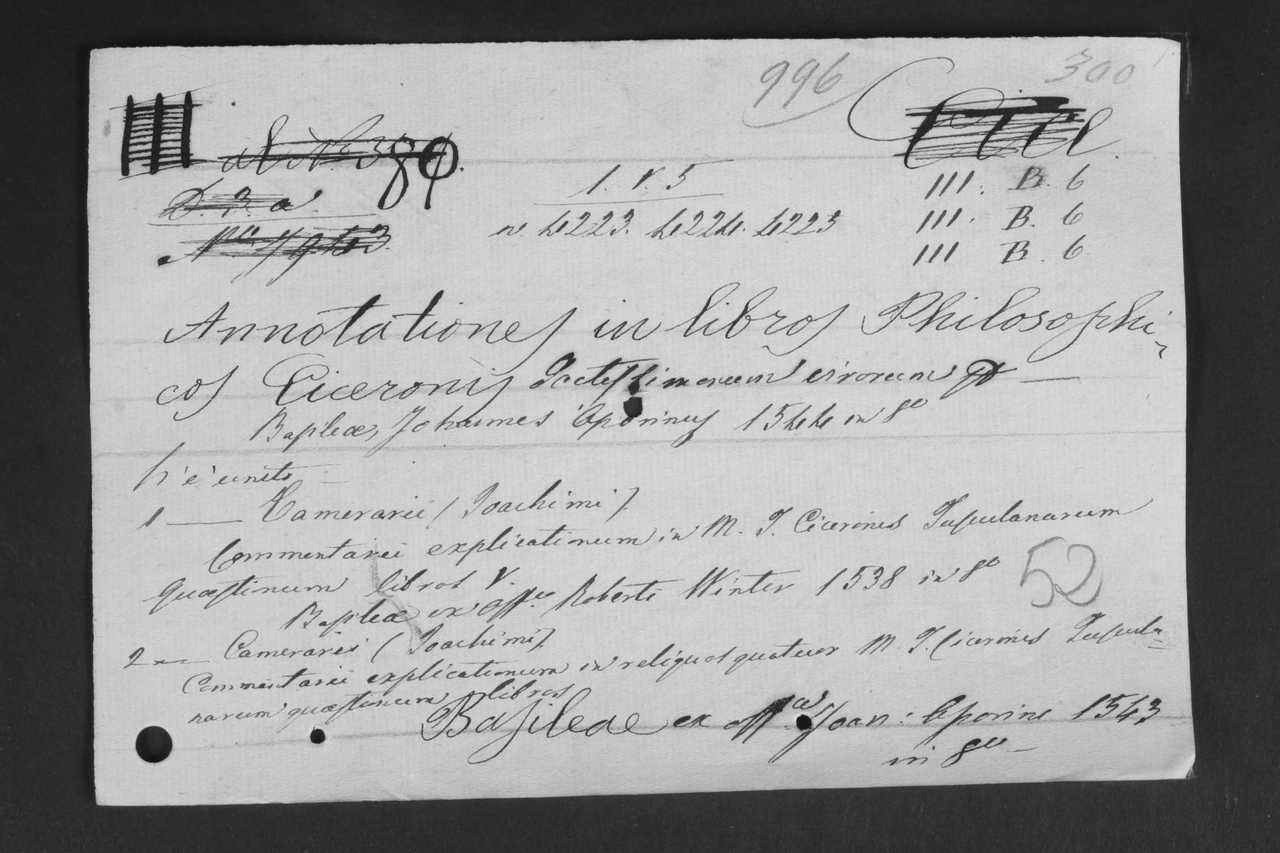 996 300
1. V. 5
III. B. 6
n. 4223. 4224. 4223
III. B. 6
III B. 6
Annotationes in libros Philosophi-
cos Ciceronis doctissimorum virorum
Basileæ, Johannes Oporinus 1544 in 8º
v'è unito
1 — Camerarii (Joachimi)
Commentarii explicationum in M. T. Ciceronis Tusculanarum
quæstionum libros V.
Basileæ ex offna Roberti Winter 1538 in 8º
52
2 — Camerarii (Joachimi)
Commentarii explicationum in reliquos quatuor M. T. Ciceronis Tuscula-
narum quæstionum libros
Basileae ex offcia Joan: Oporini 1543
in 8º